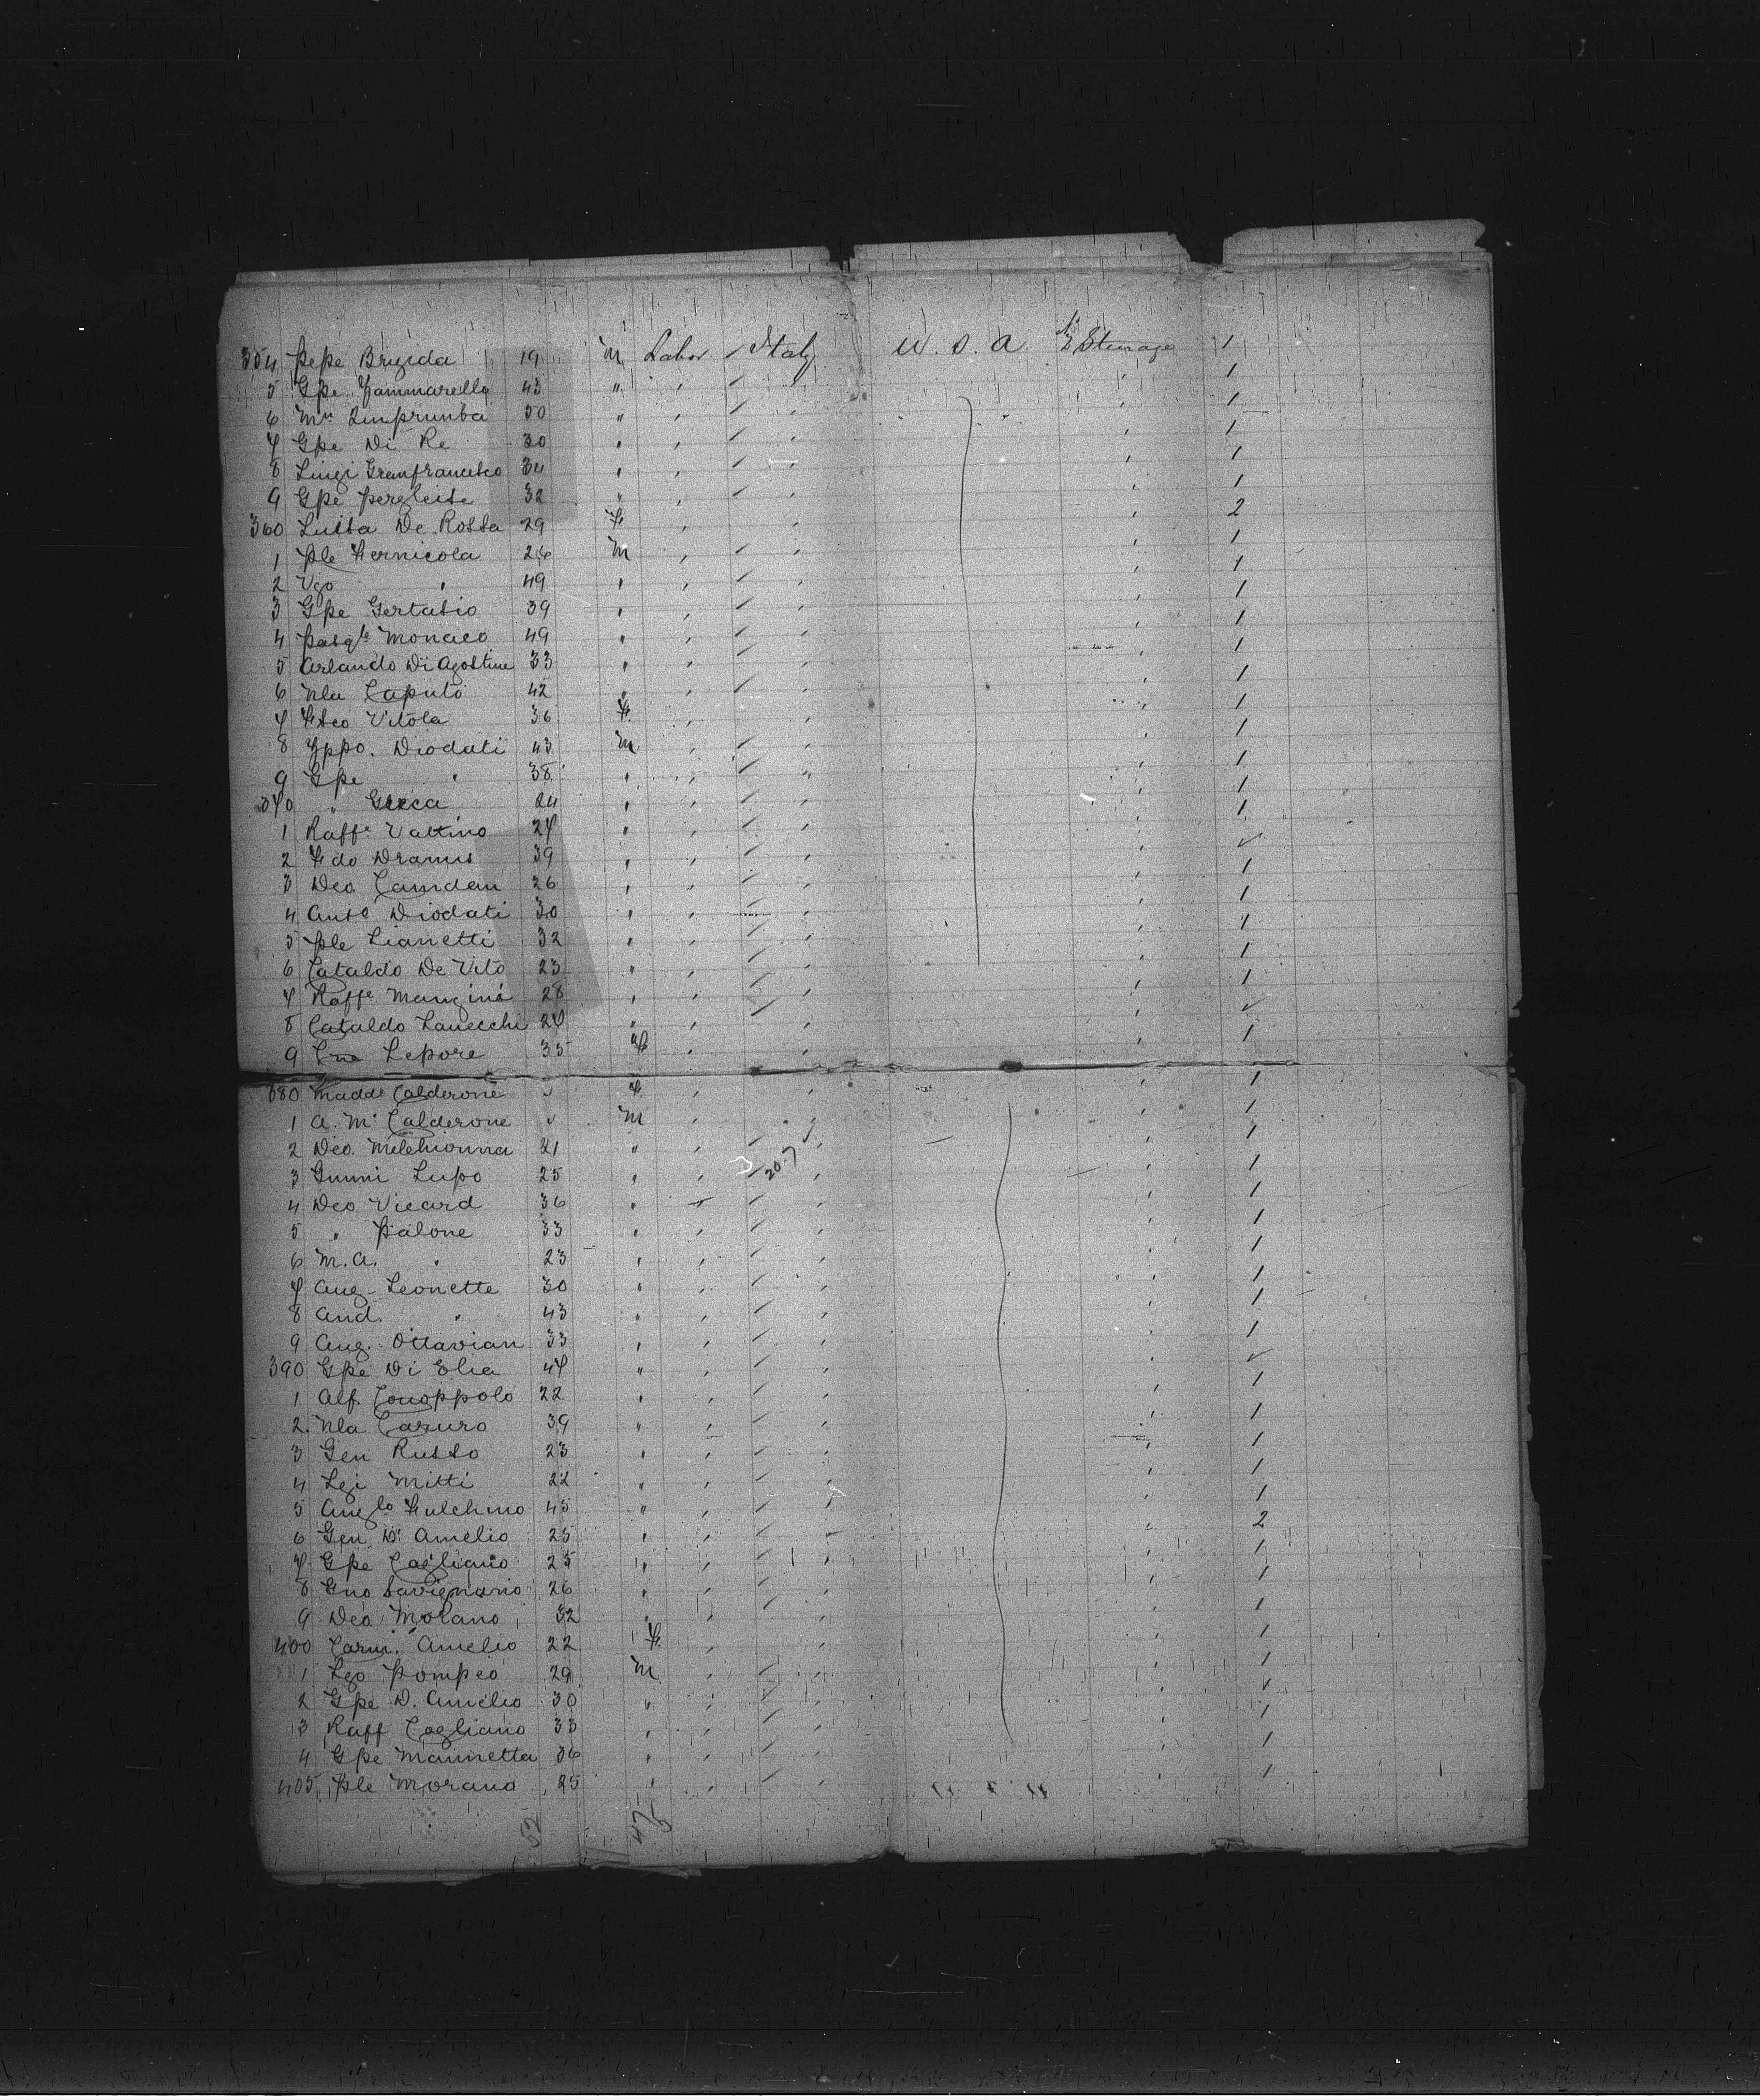 354 Pepe Brigida 19 m Labor Italy U. S. A Steerage 1
5 Gpe Zammarello 43 " 1
6 Mn Limprunba 50 " 1
7 Gpe Di Re 30 1
8 Luigi Granfrancesco 34 1
9 Gpe 32 " 1
360 Luisa De Rossa 29 F 2
1 Ple Fernicola 26 m 1
2 Vgo " 49 1
3 Gpe Gertasio 39 1
4 Pasqle Monaco 49 1
5 Arlando Di Agostino 33 1
6 Nla Caputo 42 1
7 Fsco Vitola 36 F. 1
8 Yppo. Diodati 43 m 1
9 Gpe " 38 1
370 " Greca 24 1
1 Raffe Vattino 27 1
2 Fdo Dramis 39 ✓
3 Deo Camdan 26 1
4 Anto Diodati 30 1
5 Ple Lianetti 32 1
6 Cataldo De Vito 23 1
7 Raffe Mangini 28 1
8 Cataldo Lanecchi 27 ✓
9 Lepore 35 F 1
380 Madde Calderone F 1
1 A. M. Calderone m 1
2 Deo. Melchionna 21 " 1
3 Gunni Lupo 25 20.7 1
4 Deo Vicard 36 1
5 " Palone 33 1
6 M. A. " 23 1
7 Ang Leonette 30 1
8 And. " 43 1
9 Ang. Ottavian 33 1
390 Gpe Di Elia 47 ✓
1 Alf. Conoppolo 22 1
2 Nla Caruro 39 1
3 Gen Russo 23 1
4 Lgi Mitti 22 1
5 Anglo Fulchino 45 1
6 Gen D' Amelio 25 2
7 Gpe Cagliano 25 1
8 Gno Savignano 26 1
9 Deo Morano 32 1
400 Carm. Amelio 22 F. 1
1 Lgo Pompeo 29 m 1
2 Gpe D. Amelio 30 ✓
3 Raff Cogliano 33 1
4 Gpe Mannetta 36 1
405 Ple Morano 25 1